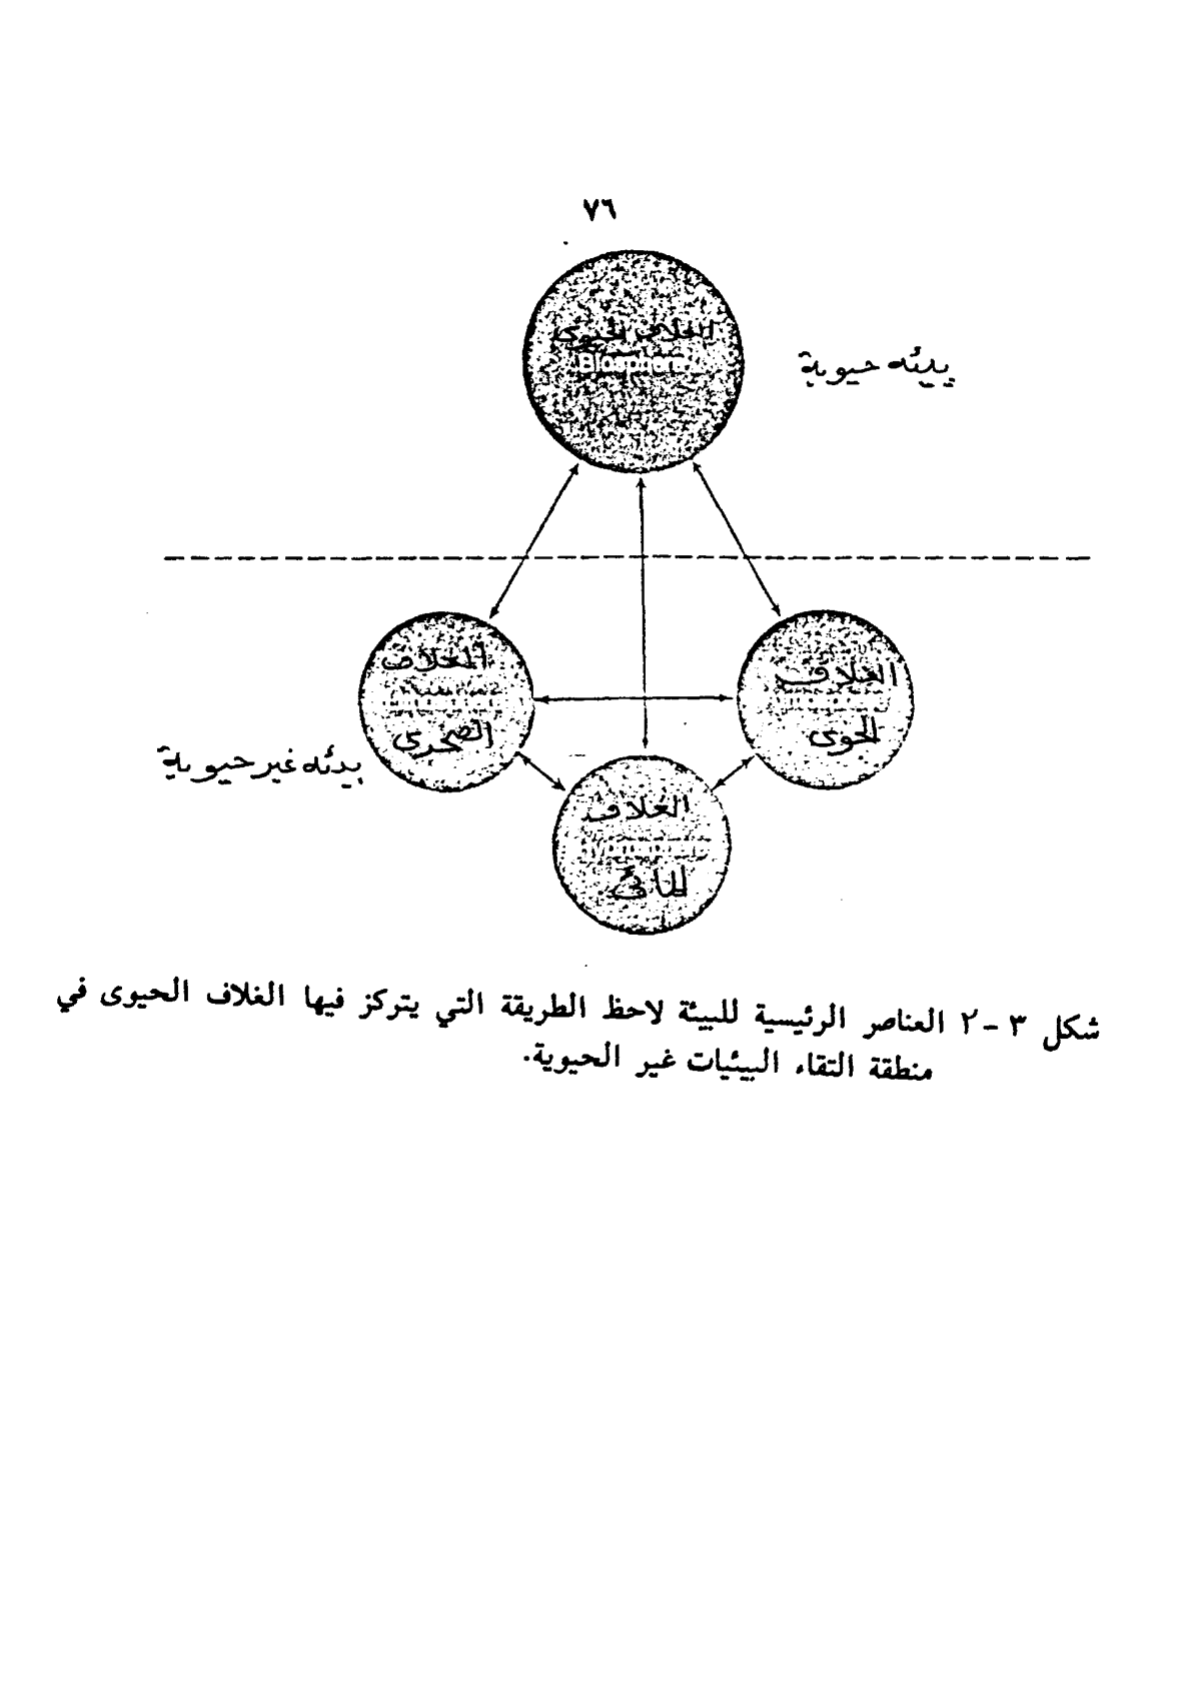 ٧٦
الغلاف الحيوى
Biosphere
بيئه حيوية
الغلاف
الصخرى
الغلاف
الجوى
بيئه غير حيوية
الغلاف
المائى
شكل ٣ - ٢ العناصر الرئيسية للبيئة لاحظ الطريقة التي يتركز فيها الغلاف الحيوى في
منطقة التقاء البيئيات غير الحيوية.